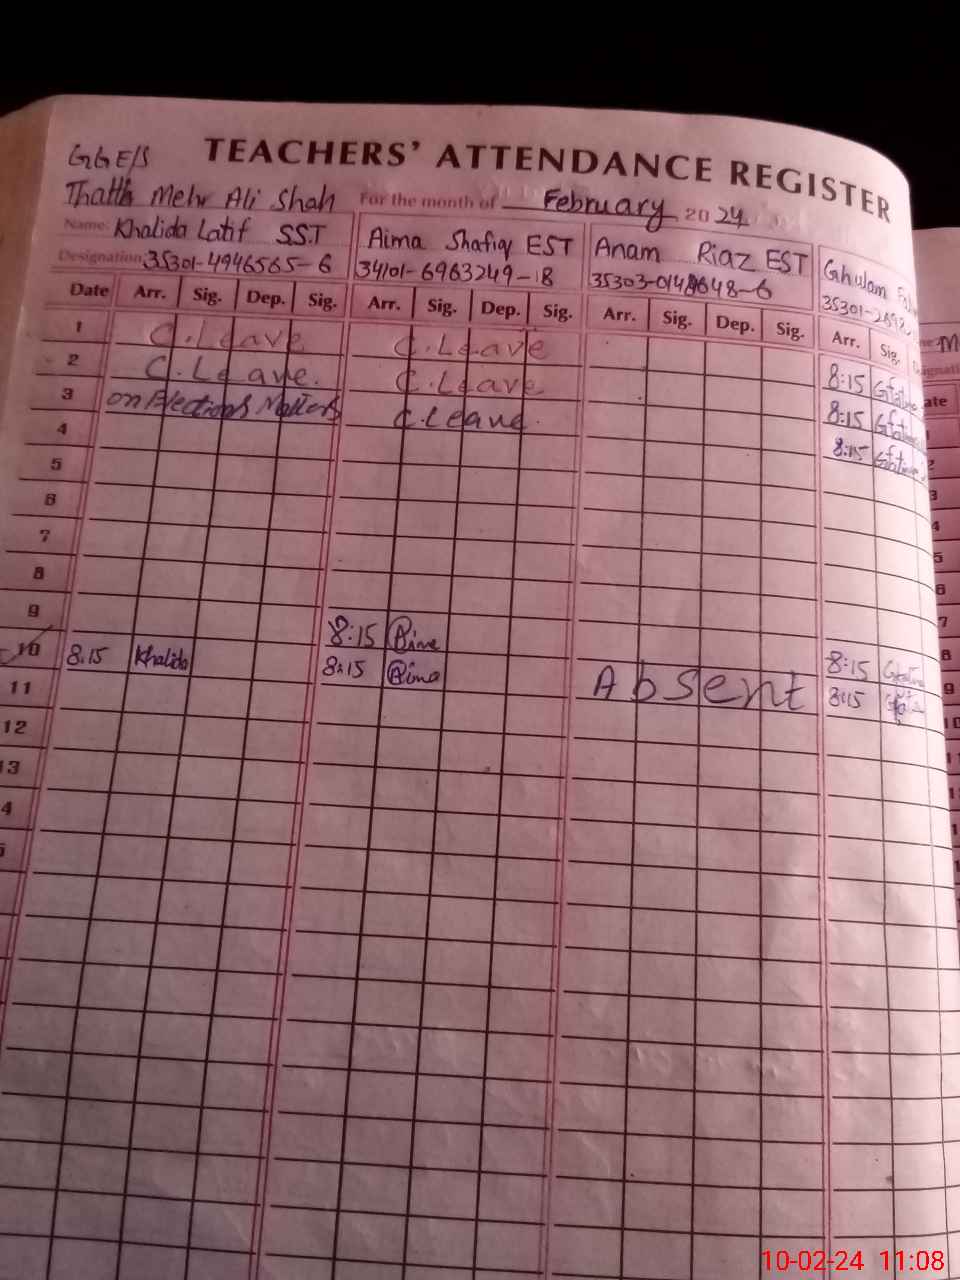 GGE/S TEACHERS' ATTENDANCE REGISTER
Thatta Mehr Ali Shah For the month of February 2024
Name: Khalida Latif SST Aima Shafiq EST Anam Riaz EST Ghulam
Designation: 35301-4946565-6 34101-6963249-18 35303-0148648-6 35301-
Date Arr. Sig. Dep. Sig. Arr. Sig. Dep. Sig. Arr. Sig. Dep. Sig. Arr. Sig.
1 C.Leave C.Leave 8:15
2 C.Leave. C.Leave 8:15
3 on Elections Matters C.Leave. 8:15
4
5
6
7
8
9 8:15 Aima 8:15
10 8.15 Khalida 8:15 Aima Absent 8:15
11
12
13
4
5
10-02-24 11:08